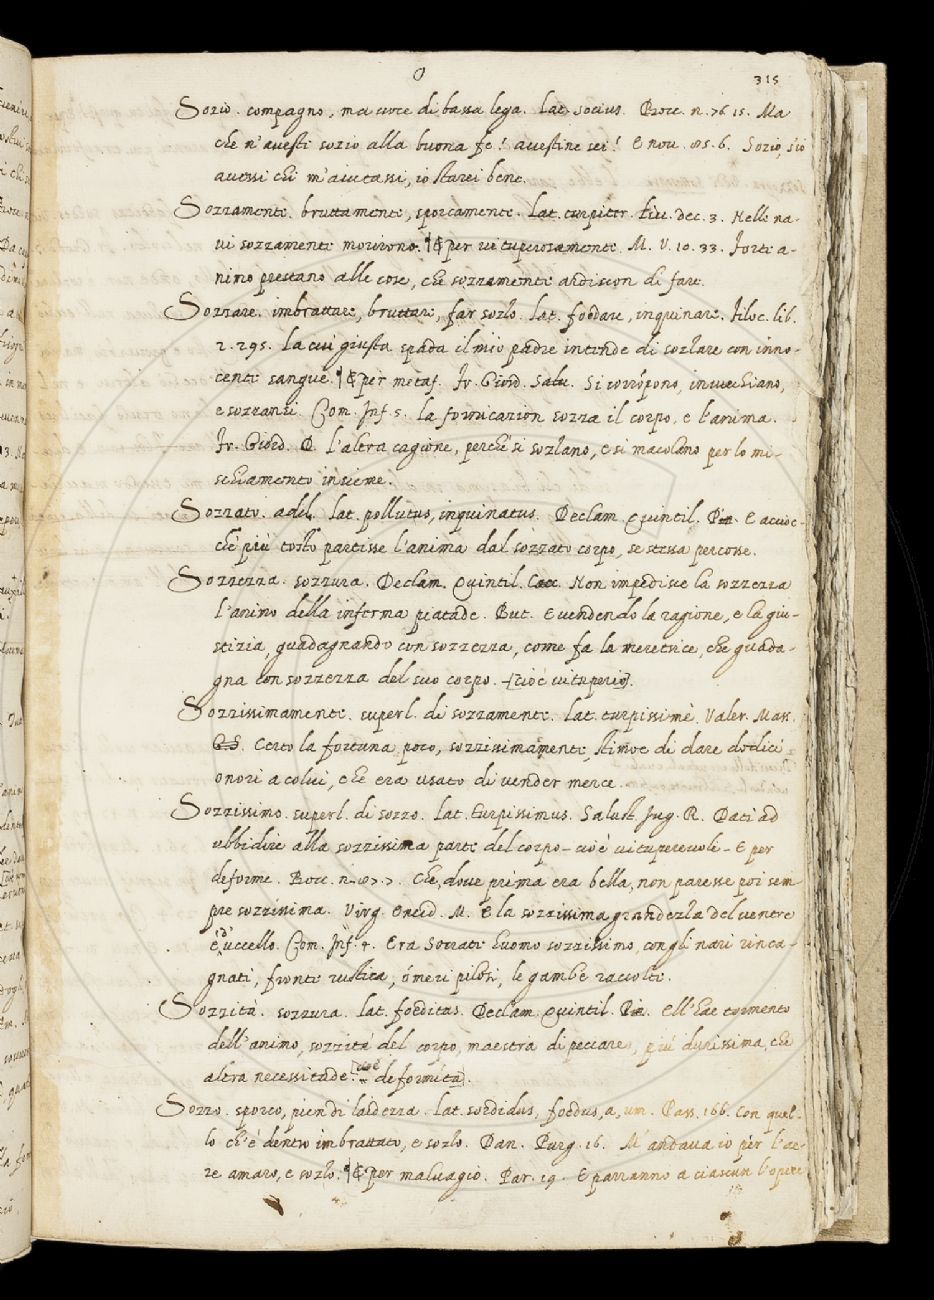 O 315
Sozio. compagno, ma voce di bassa lega. Lat. socius. Bocc. n. 76. 15. Ma
che n'avesti sozio alla buona fe! avestine sei! E nov. 85. 6. Sozio, s'io
avessi chi m'aiutassi, io starei bene.
Sozzamente. bruttamente, sporcamente. Lat. turpiter. Liv. dec. 3. Nelle na-
vi sozzamente morirono. ¶ E per vituperosamente. M. V. 10. 33. Forte a-
nimo prestano alle cose, che sozzamente ardiscon di fare.
Sozzare. imbrattare, bruttare, far sozzo. Lat. foedare, inquinare. Filoc. lib.
2. 295. La cui giusta spada il mio padre intende di sozzare con inno-
cente sangue. ¶ E per metaf. Fr. Giord. Salu. Si corrópono, invecchiano,
e sozzansi. Com. Inf. 5. La fornicazion sozza il corpo, e l'anima.
Fr. Giord. D. L'altra cagione, perche si sozzano, e si macolano per lo mi-
schiamento insieme.
Sozzato. add. Lat. pollutus, inquinatus. Declam. Quintil. E acciòc-
chè più tosto partisse l'anima dal sozzato corpo, se stessa percosse.
Sozzezza. sozzura. Declam. Quintil. Non impedisce la sozzezza
l'animo della inferma pietade. But. E vendendo la ragione, e la giu-
stizia, guadagnando con sozzezza, come fa la meretrice, che guada-
gna con sozzezza del suo corpo. [cioè vituperio].
Sozzissimamente. superl. di sozzamente. Lat. turpissimè. Valer. Mass.
Certo la fortuna poco, sozzissimamente, stimoe di dare dodici
onori a colui, che era usato di vender merce.
Sozzissimo. superl. di sozzo. Lat. turpissimus. Salust. Jug. R. Dati ad
ubbidire alla sozzissima parte del corpo - cioè vituperevole - E per
deforme. Bocc. n. 87. 7. Che, dove prima era bella, non paresse poi sem
pre sozzissima. Virg. Eneid. M. E la sozzissima grandezza del ventre
è d'uccello. Com. Inf. 4. Era Socrate huomo sozzissimo, con gli nari rinca-
gnati, fronte rustica, ómeri pilosi, le gambe raccolte.
Sozzità. sozzura. Lat. foeditas. Declam. Quintil. Ell'hae tormento
dell'animo, sozzità del corpo, maestra di peccare, più durissima, che
altra necessitade. [cioè deformità].
Sozzo. sporco, pien di laidezza. Lat. sordidus, foedus, a, um. Pass. 166. Con quel-
lo ch'è dentro imbrattato, e sozzo. Dan. Purg. 16. M'andava io per l'ae-
re amaro, e sozzo. ¶ E per malvagio. Par. 19. E parranno a ciascun l'opere